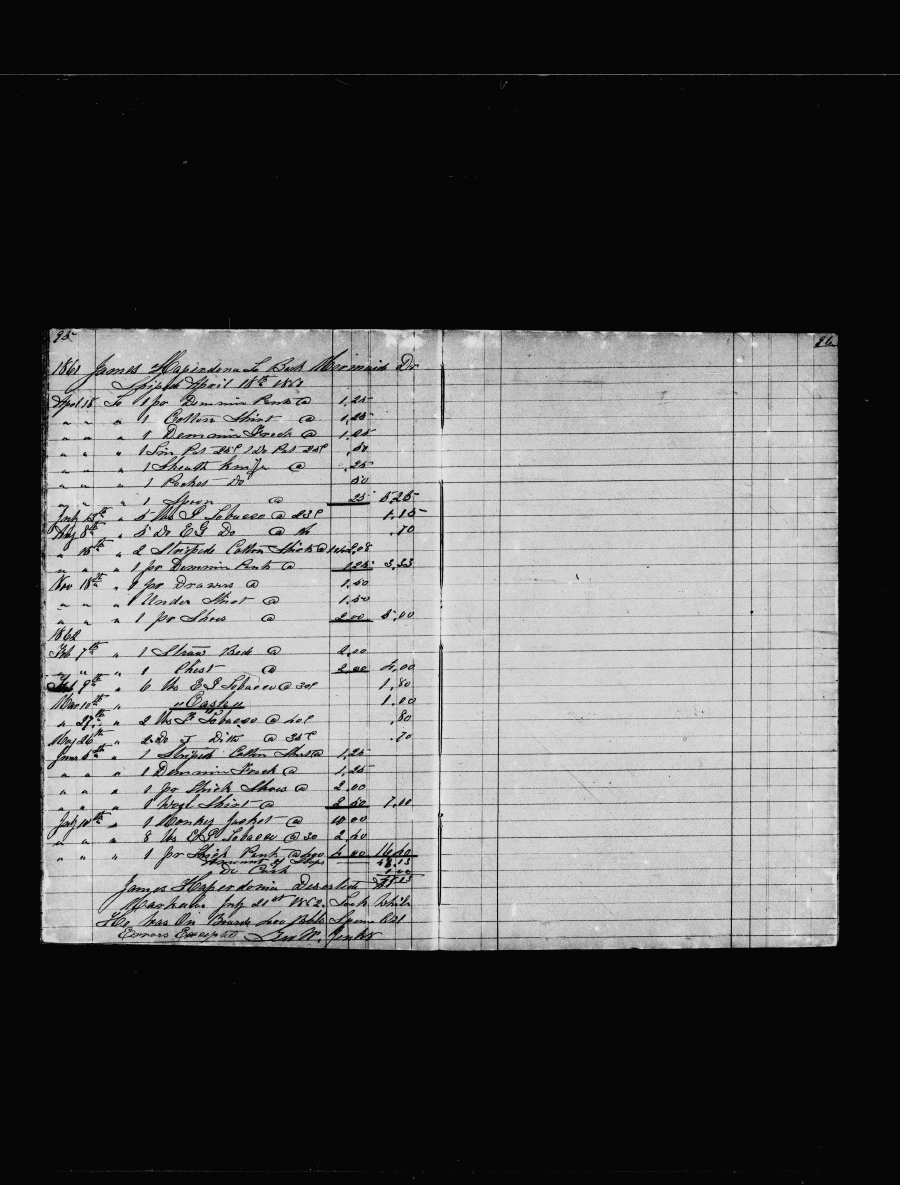 95
96
1861 James Haperdona To Bark Mermaid Dr
Shiped April 18th 1861
April 18 To 1 pr Demmin Pants @ 1,25
" " " 1 Cotton Shirt @ 1,25
" " " 1 Demmin Frock @ 1,25
" " " 1 Tin Pot 25c 1 Do Pot 25c ,50
" " " 1 Sheath Knife @ ,25
" " " 1 Pocket Do 50
" " " 1 Spoon @ 25 5,25
July 15th " 5 lbs Tobacco @ 23c 1.15
Aug 8th " 5 Do EG Do @ 14 .70
" 15th " 2 Stripede Cotton Shirts @ 104 2,08
" " " 1 pr Demmin Pants @ 1.25 3,33
Nov 18th " 1 pr Drawers @ 1,50
" " " 1 Under Shirt @ 1,50
" " " 1 pr Shoes @ 2.00 5,00
1862
Feb 7th " 1 Straw Bed @ 2,00
" " " 1 Chest @ 2,00 4,00
9th " 6 lbs Tobacco @ 30c 1,80
Mar 10th " " Cash " 1.00
" 27th " 2 lbs Tobacco @ 40c .80
May 26th " 2 Do Ditto @ 35c .70
June 5th " 1 Striped Cotton Shirt @ 1,25
" " " 1 Demmin Frock @ 1,25
" " " 1 pr Thick Shoes @ 2.00
" " " 1 Wool Shirt @ 2,50 7,00
July 10th " 1 Monkey Jacket @ 10.00
" " " 8 lbs Tobacco @ 30 2,40
" " " 1 pr Thick Pants @ 400 4,00 16,40
Amount of Slops 48.13
Do Cash
James Haperdona Deserted
July 21st 1862.
He has On Board Sperm Oil
Errors Excepted Geo W. Jenks